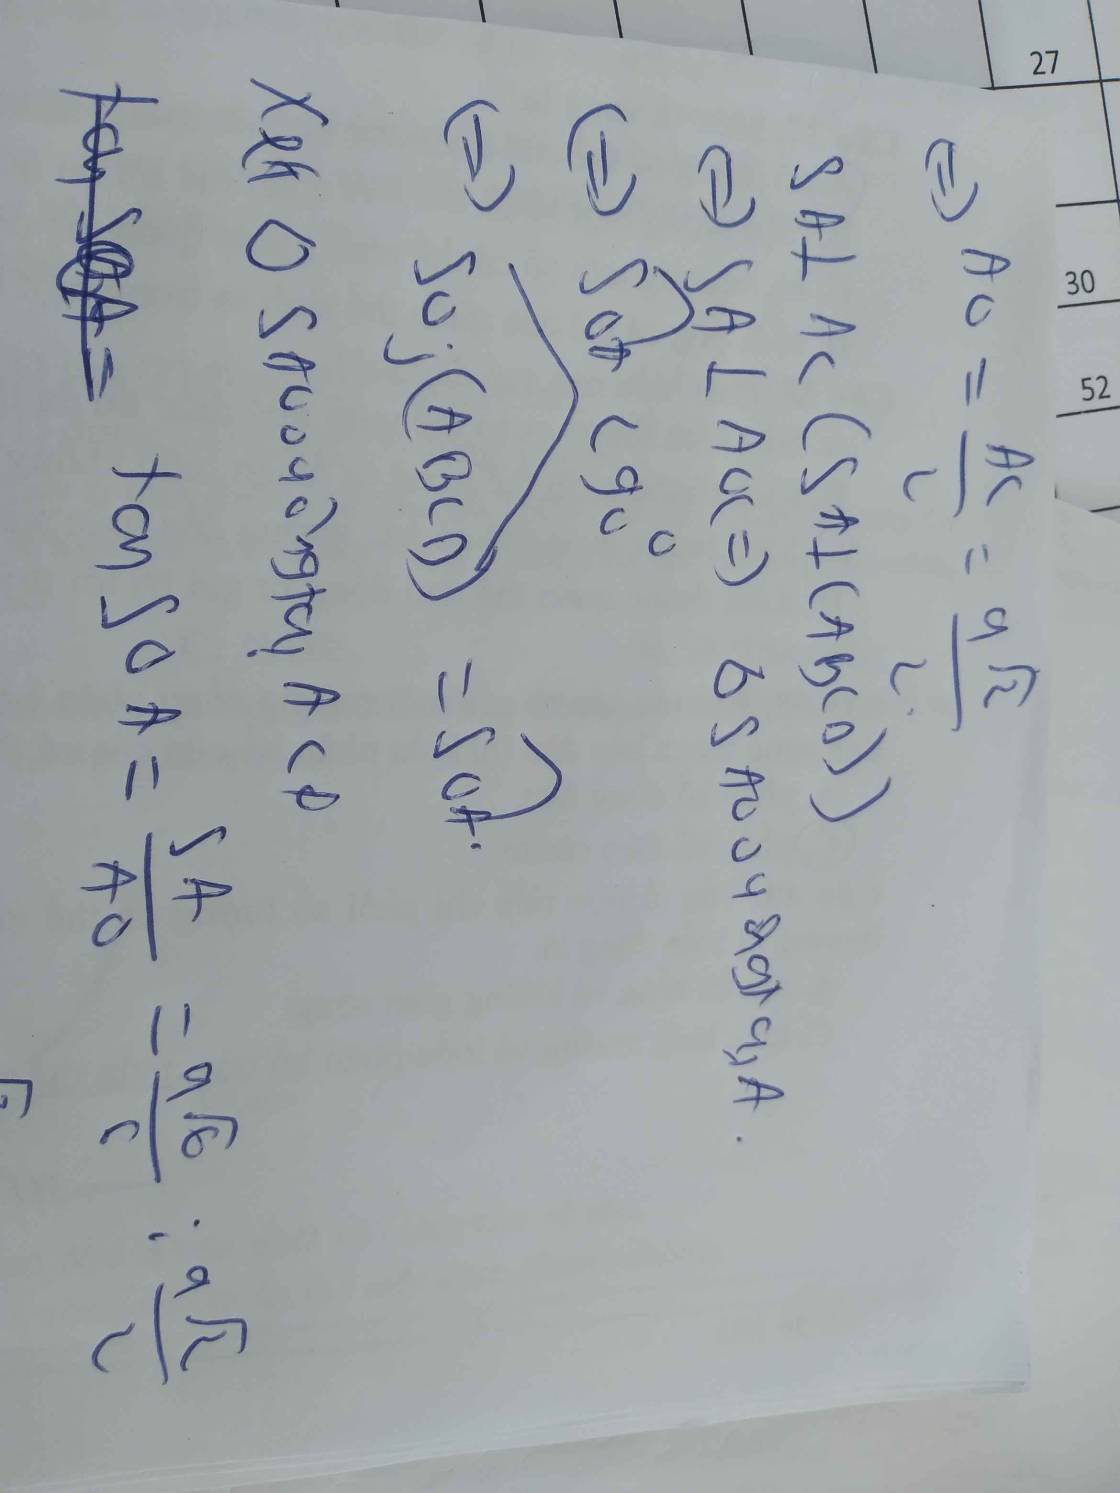 ⇒ AO = AC/2 = a√2/2.
SA ⊥ AC (SA ⊥ (ABCD))
⇒ SA ⊥ AO ⇒ Δ SAO vuông tại A.
⇒ SOA < 90°
⇒ (SO; (ABCD)) = SOA.
Xét Δ SAO vuông tại A có
tan SOA =
tan SOA = SA/AO = a√6/2 : a√2/2
27
30
52